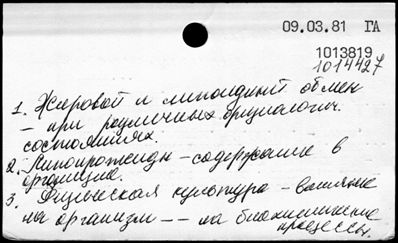 09.03.81 ГА
1013819
1014427
1. Жировой и липоидный обмен
— при различных физиологич.
состояниях.
2. Липопротеиды — содержание в
организме.
3. Физическая культура — влияние
на организм — — на биохимические
процессы.